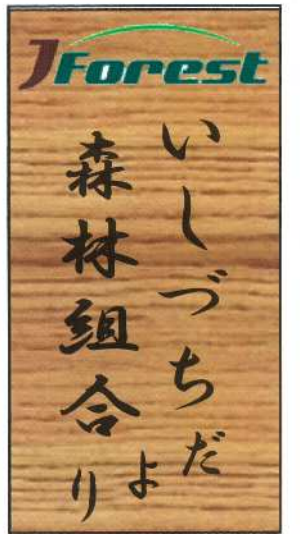 JForest
いしづち
森林組合
だより